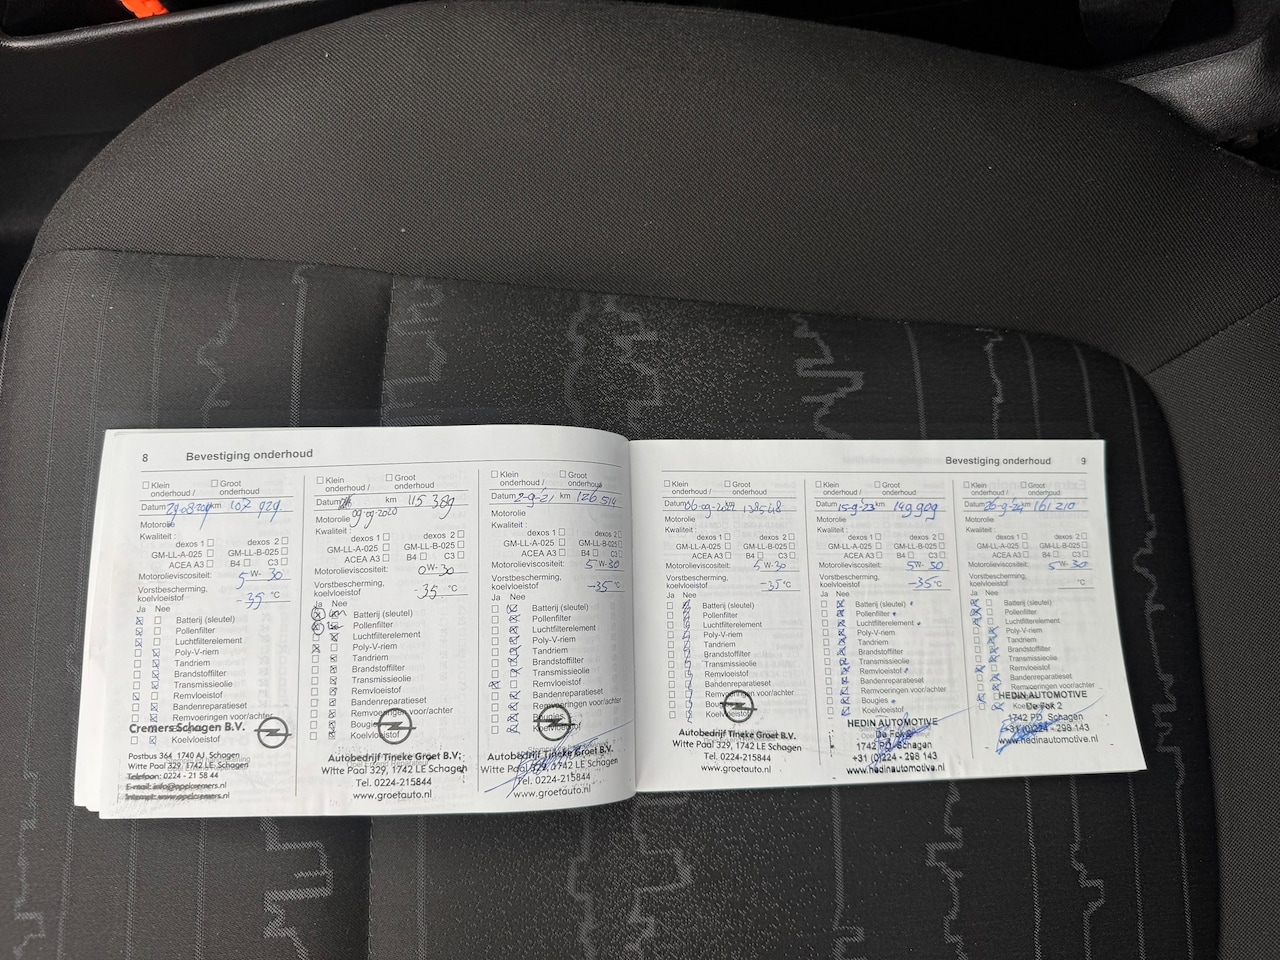 8 Bevestiging onderhoud
Klein onderhoud / Groot onderhoud
Datum km 107 929
Motorolie
Kwaliteit :
dexos 1 dexos 2
GM-LL-A-025 GM-LL-B-025
ACEA A3 B4 C3
Motorolieviscositeit: 5 W- 30
Vorstbescherming, koelvloeistof -35 °C
Ja Nee
Batterij (sleutel)
Pollenfilter
Luchtfilterelement
Poly-V-riem
Tandriem
Brandstoffilter
Transmissieolie
Remvloeistof
Bandenreparatieset
Remvoeringen voor/achter
Koelvloeistof
Cremers Schagen B.V.
Postbus 364, 1740 AJ, Schagen
Witte Paal 329, 1742 LE Schagen
Telefoon: 0224 - 21 58 44
E-mail: info@opelcremers.nl
Internet: www.opelcremers.nl
Klein onderhoud / Groot onderhoud
Datum 09-09-2020 km 115 369
Motorolie
Kwaliteit :
dexos 1 dexos 2
GM-LL-A-025 GM-LL-B-025
ACEA A3 B4 C3
Motorolieviscositeit: 0W-30
Vorstbescherming, koelvloeistof -35 °C
Ja Nee
Batterij (sleutel)
Pollenfilter
Luchtfilterelement
Poly-V-riem
Tandriem
Brandstoffilter
Transmissieolie
Remvloeistof
Bandenreparatieset
Remvoeringen voor/achter
Bougies
Koelvloeistof
Autobedrijf Tineke Groet B.V.
Witte Paal 329, 1742 LE Schagen
Tel. 0224-215844
www.groetauto.nl
Klein onderhoud / Groot onderhoud
Datum 2-9-'21 km 126 514
Motorolie
Kwaliteit :
dexos 1 dexos 2
GM-LL-A-025 GM-LL-B-025
ACEA A3 B4 C3
Motorolieviscositeit: 5 W-30
Vorstbescherming, koelvloeistof -35 °C
Ja Nee
Batterij (sleutel)
Pollenfilter
Luchtfilterelement
Poly-V-riem
Tandriem
Brandstoffilter
Transmissieolie
Remvloeistof
Bandenreparatieset
Remvoeringen voor/achter
Bougies
Koelvloeistof
Autobedrijf Tineke Groet B.V.
Witte Paal 329, 1742 LE Schagen
Tel. 0224-215844
www.groetauto.nl
Bevestiging onderhoud 9
Klein onderhoud / Groot onderhoud
Datum km 138548
Motorolie
Kwaliteit :
dexos 1 dexos 2
GM-LL-A-025 GM-LL-B-025
ACEA A3 B4 C3
Motorolieviscositeit: 5 W-30
Vorstbescherming, koelvloeistof -35 °C
Ja Nee
Batterij (sleutel)
Pollenfilter
Luchtfilterelement
Poly-V-riem
Tandriem
Brandstoffilter
Transmissieolie
Remvloeistof
Bandenreparatieset
Remvoeringen voor/achter
Bougies
Koelvloeistof
Autobedrijf Tineke Groet B.V.
Witte Paal 329, 1742 LE Schagen
Tel. 0224-215844
www.groetauto.nl
Klein onderhoud / Groot onderhoud
Datum 15-9-'23 km 149909
Motorolie
Kwaliteit :
dexos 1 dexos 2
GM-LL-A-025 GM-LL-B-025
ACEA A3 B4 C3
Motorolieviscositeit: 5 W- 30
Vorstbescherming, koelvloeistof -35 °C
Ja Nee
Batterij (sleutel)
Pollenfilter
Luchtfilterelement
Poly-V-riem
Tandriem
Brandstoffilter
Transmissieolie
Remvloeistof
Bandenreparatieset
Remvoeringen voor/achter
Bougies
Koelvloeistof
HEDIN AUTOMOTIVE
De Fok 2
1742 PD Schagen
+31 (0)224 - 298 143
www.hedinautomotive.nl
Klein onderhoud / Groot onderhoud
Datum 26-9-'24 km 161 210
Motorolie
Kwaliteit :
dexos 1 dexos 2
GM-LL-A-025 GM-LL-B-025
ACEA A3 B4 C3
Motorolieviscositeit: 5 W-30
Vorstbescherming, koelvloeistof °C
Ja Nee
Batterij (sleutel)
Pollenfilter
Luchtfilterelement
Poly-V-riem
Tandriem
Brandstoffilter
Transmissieolie
Remvloeistof
Bandenreparatieset
Remvoeringen voor/achter
HEDIN AUTOMOTIVE
De Fok 2
1742 PD Schagen
+31 (0)224 - 298 143
www.hedinautomotive.nl